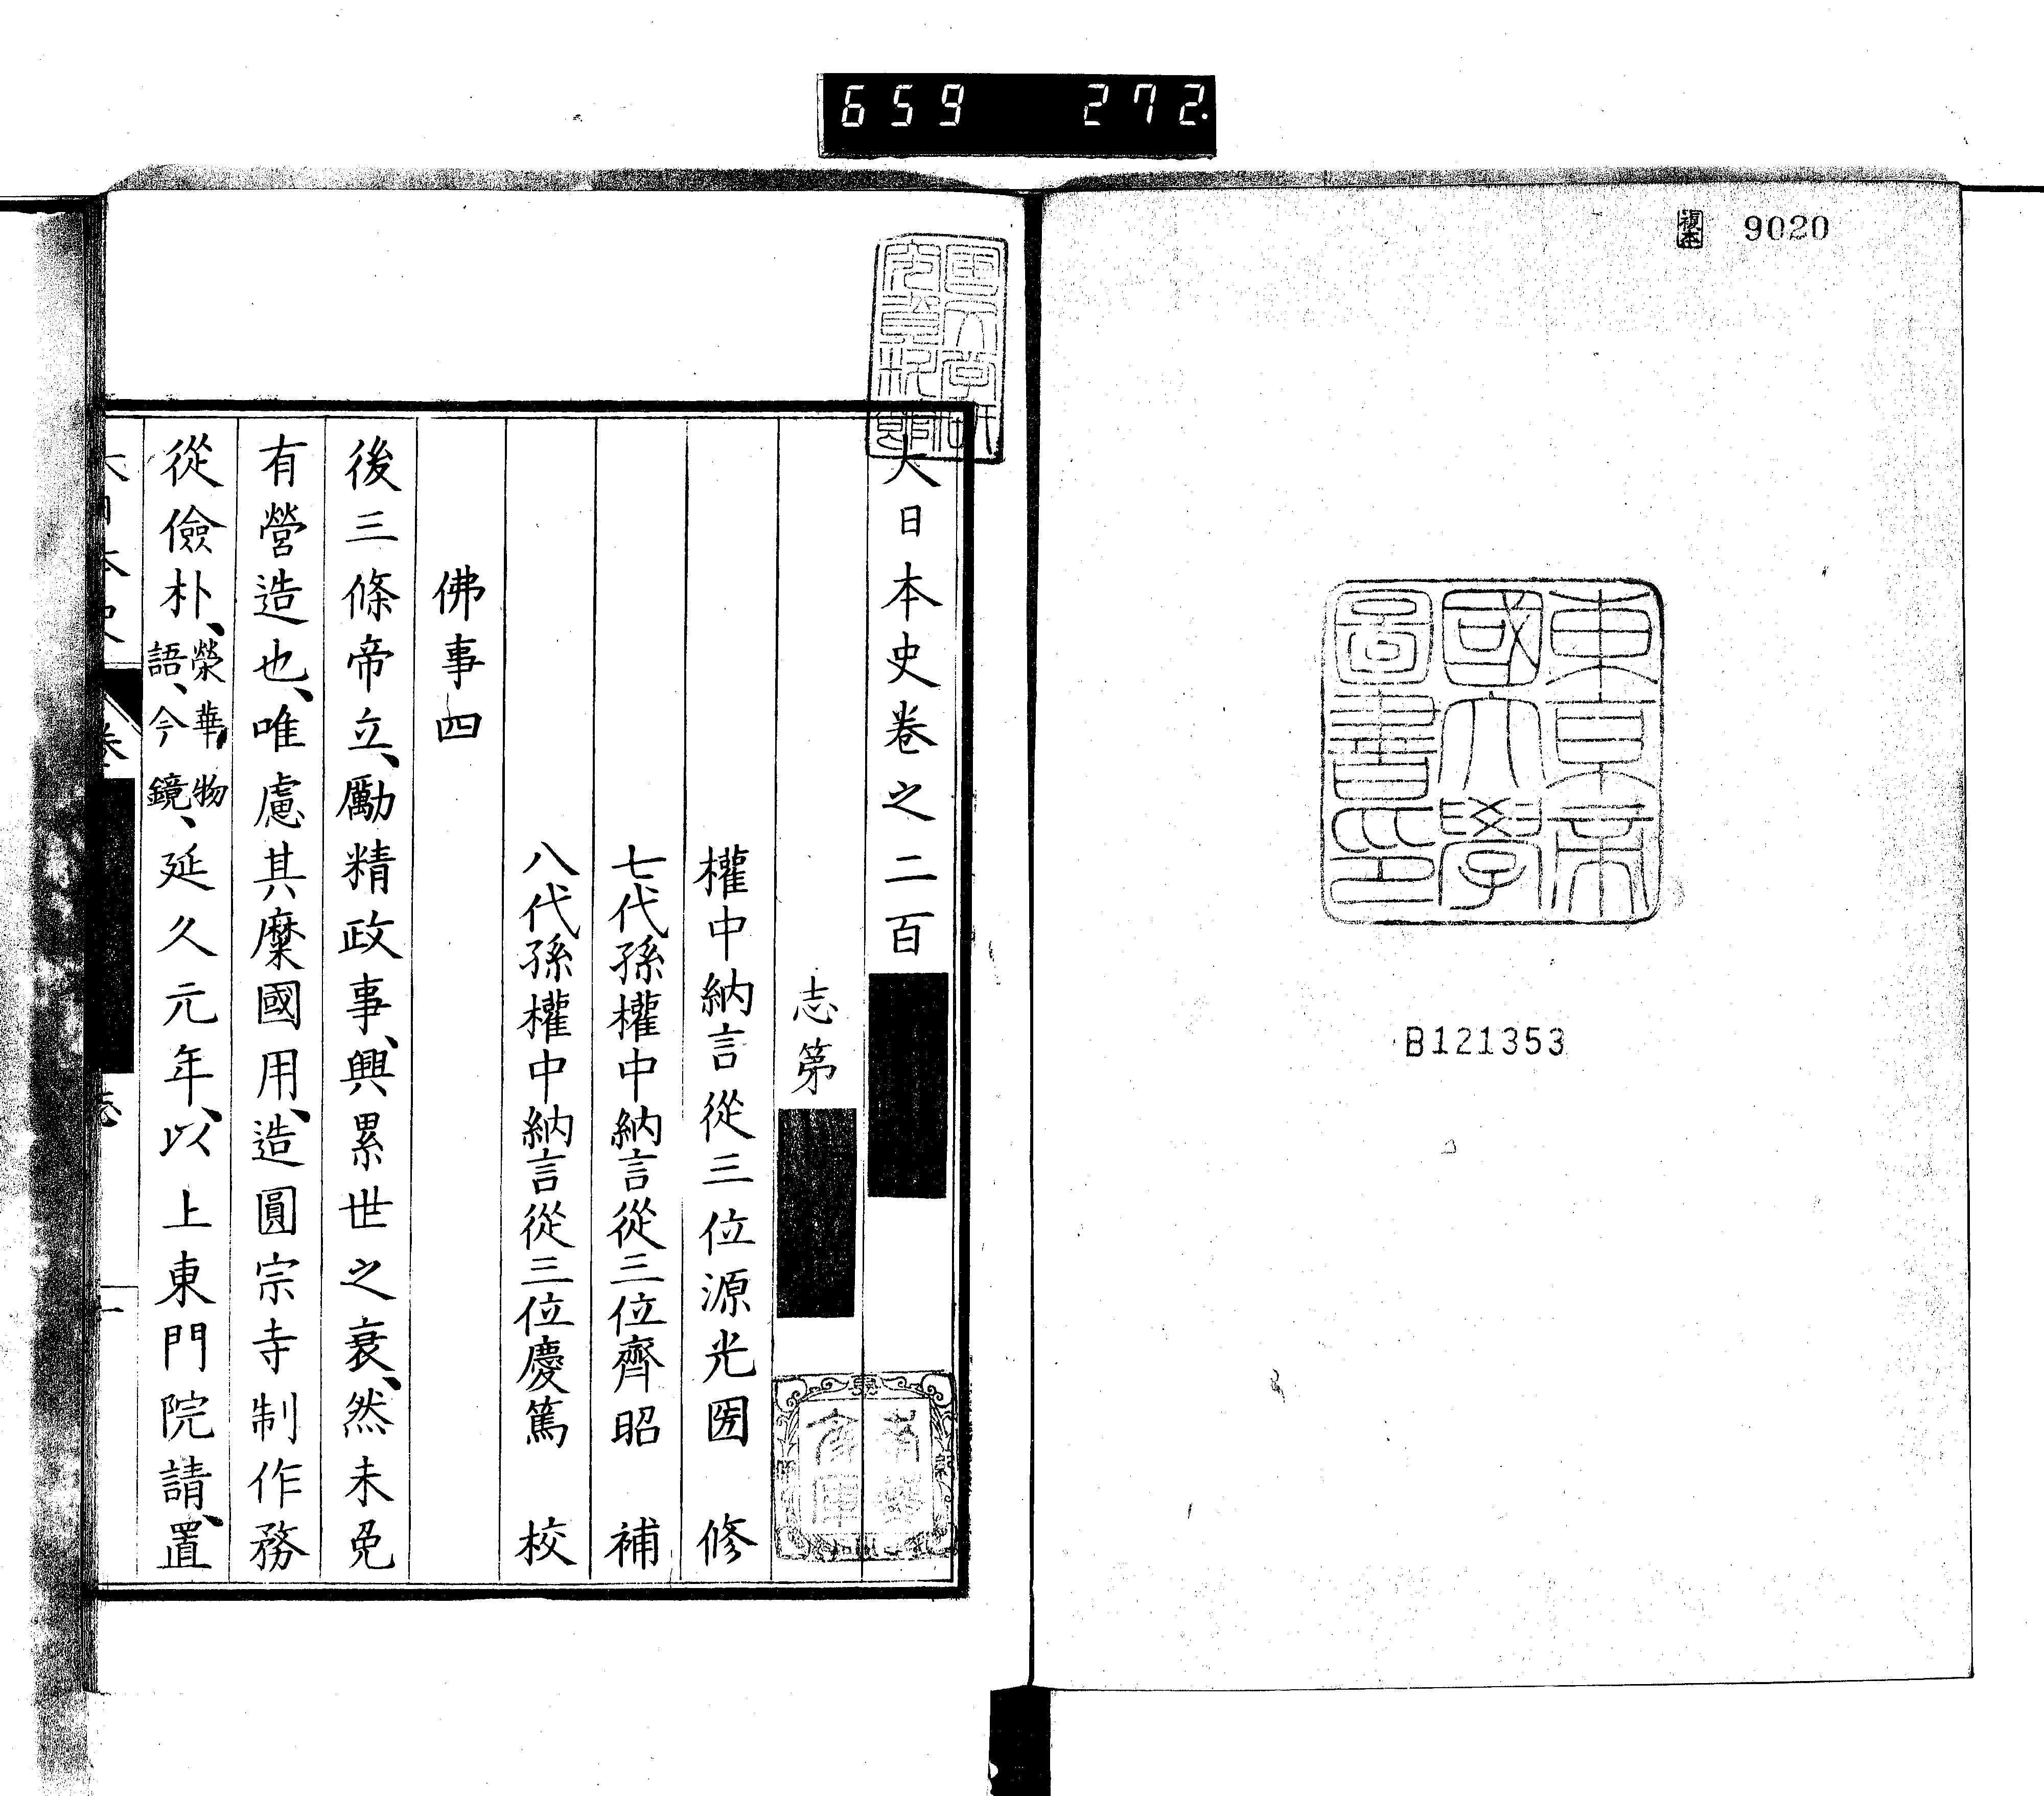 659 272.
複本 9020
東京帝
國大學
圖書印
B121353
大日本史卷之二百
志第
權中納言從三位源光圀 修
七代孫權中納言從三位齊昭 補
八代孫權中納言從三位慶篤 校
佛事四
後三條帝立、勵精政事、興累世之衰、然未免
有營造也、唯慮其糜國用、造圓宗寺制作務
從儉朴、榮華物語、今鏡、延久元年、以上東門院請、置